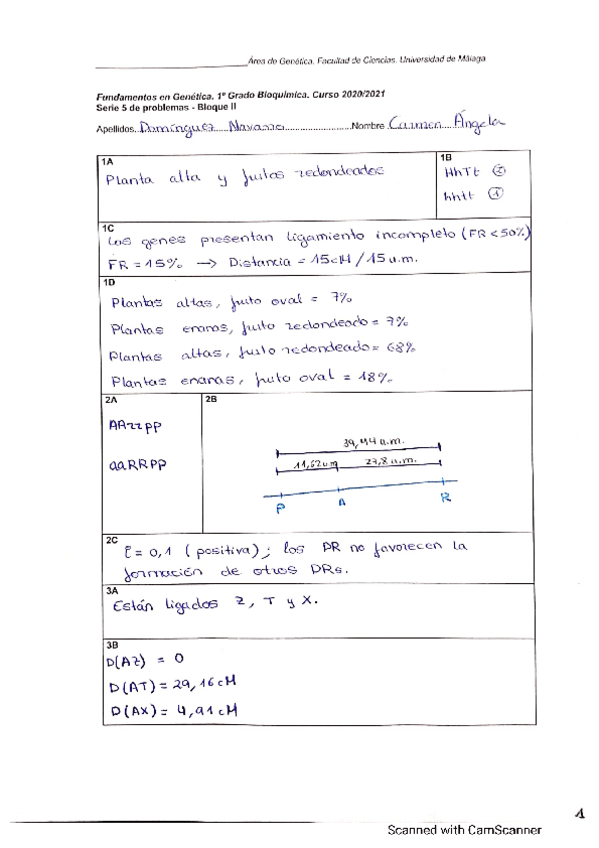 Área de Genética. Facultad de Ciencias. Universidad de Málaga
Fundamentos en Genética. 1º Grado Bioquímica. Curso 2020/2021
Serie 5 de problemas - Bloque II
Apellidos Domínguez Navarro Nombre Carmen Ángela
1A
Planta alta y frutos redondeados
1B
HhTt ②
hhtt ①
1C
Los genes presentan ligamiento incompleto (FR < 50%)
FR = 15% → Distancia = 15cM / 15 u.m.
1D
Plantas altas, fruto oval = 7%
Plantas enanas, fruto redondeado = 7%
Plantas altas, fruto redondeado = 68%
Plantas enanas, fruto oval = 18%
2A
AArrPP
aaRRPP
2B
39,44 u.m.
11,62um 27,8 u.m.
P A R
2C
I = 0,1 (positiva); los DR no favorecen la
formación de otros DRs.
3A
Están ligados Z, T y X.
3B
D(AZ) = 0
D(AT) = 29,16 cM
D(AX) = 4,91 cM
1
Scanned with CamScanner